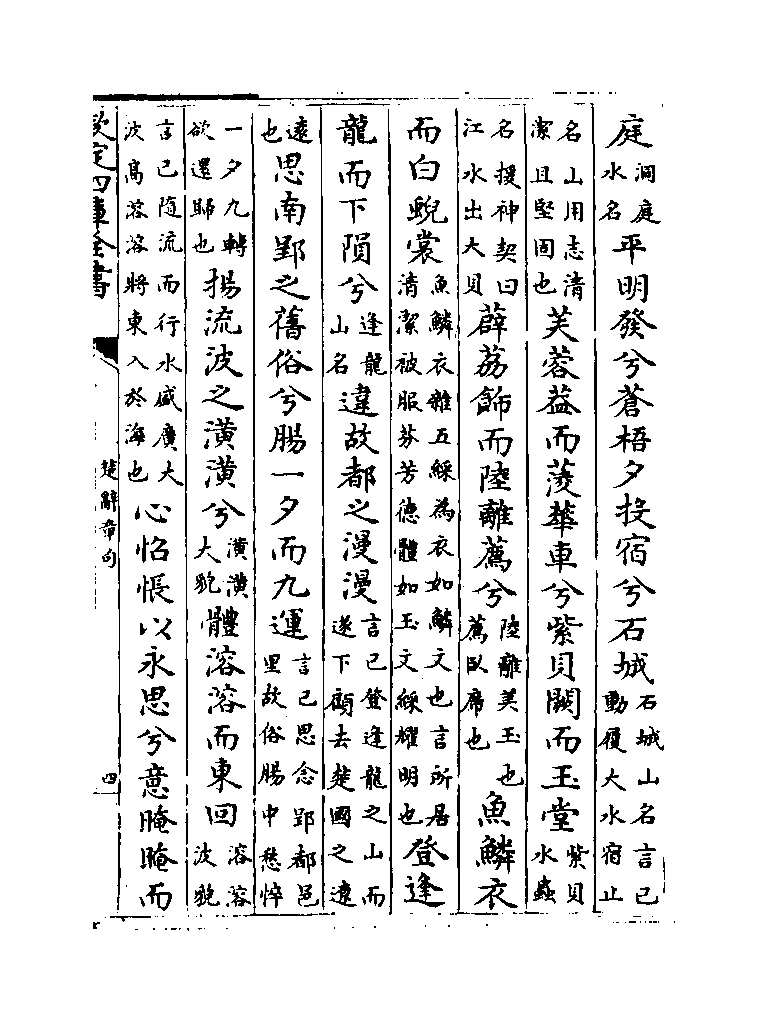 庭洞庭水名平明發兮蒼梧夕投宿兮石城石城山名言已動履大水宿止
名山用志清潔且堅固也芙蓉葢而蓤華車兮紫貝闕而玉堂紫貝水蟲
名援神契曰江水出大貝薜荔飾而陸離薦兮陸離美玉也薦臥席也魚鱗衣
而白蜺裳魚鱗衣雜五綵為衣如鱗文也言所居清潔被服芬芳德體如玉文綵耀明也登逢
龍而下隕兮逢龍山名違故都之漫漫言已登逢龍之山而遂下顧去楚國之遼
遠也思南郢之舊俗兮腸一夕而九運言已思念郢都邑里故俗腸中愁悴
一夕九轉欲還歸也揚流波之潢潢兮潢潢大貌體溶溶而東回溶溶波貌
言已隨流而行水盛廣大波高溶溶將東入於海也心怊悵以永思兮意晻晻而
欽定四庫全書
楚辭章句
四